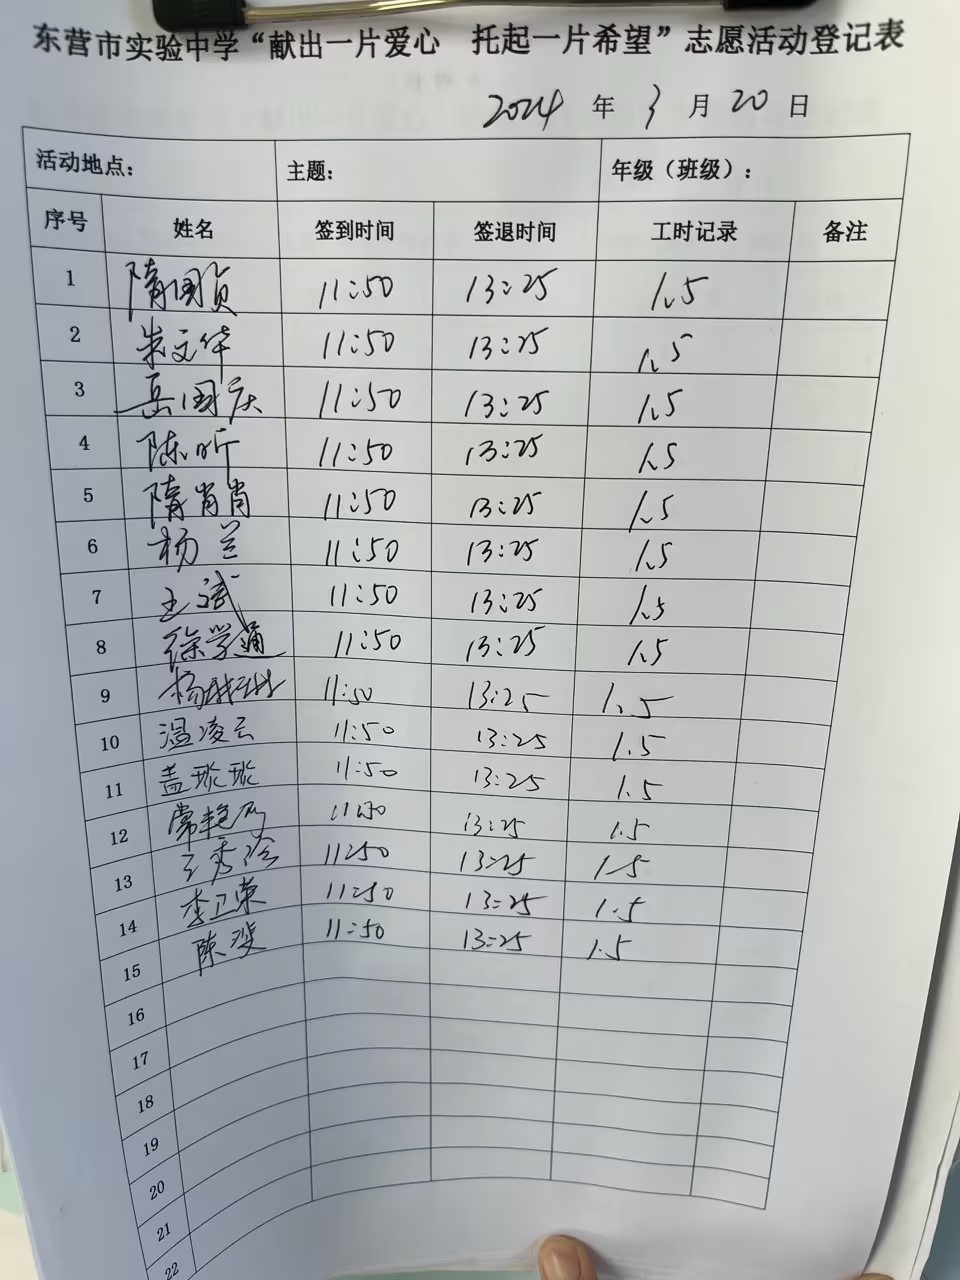 东营市实验中学“献出一片爱心 托起一片希望”志愿活动登记表
2024 年 3 月 20 日
活动地点： 主题： 年级（班级）：
序号 姓名 签到时间 签退时间 工时记录 备注
1 隋国贞 11:50 13:25 1.5
2 朱文华 11:50 13:25 1.5
3 岳国庆 11:50 13:25 1.5
4 陈昕 11:50 13:25 1.5
5 隋肖肖 11:50 13:25 1.5
6 杨兰 11:50 13:25 1.5
7 王斌 11:50 13:25 1.5
8 徐学通 11:50 13:25 1.5
9 11:50 13:25 1.5
10 温凌云 11:50 13:25 1.5
11 盖琰琰 11:50 13:25 1.5
12 11:50 13:25 1.5
13 王秀玲 11:50 13:25 1.5
14 李卫荣 11:50 13:25 1.5
15 11:50 13:25 1.5
16
17
18
19
20
21
22